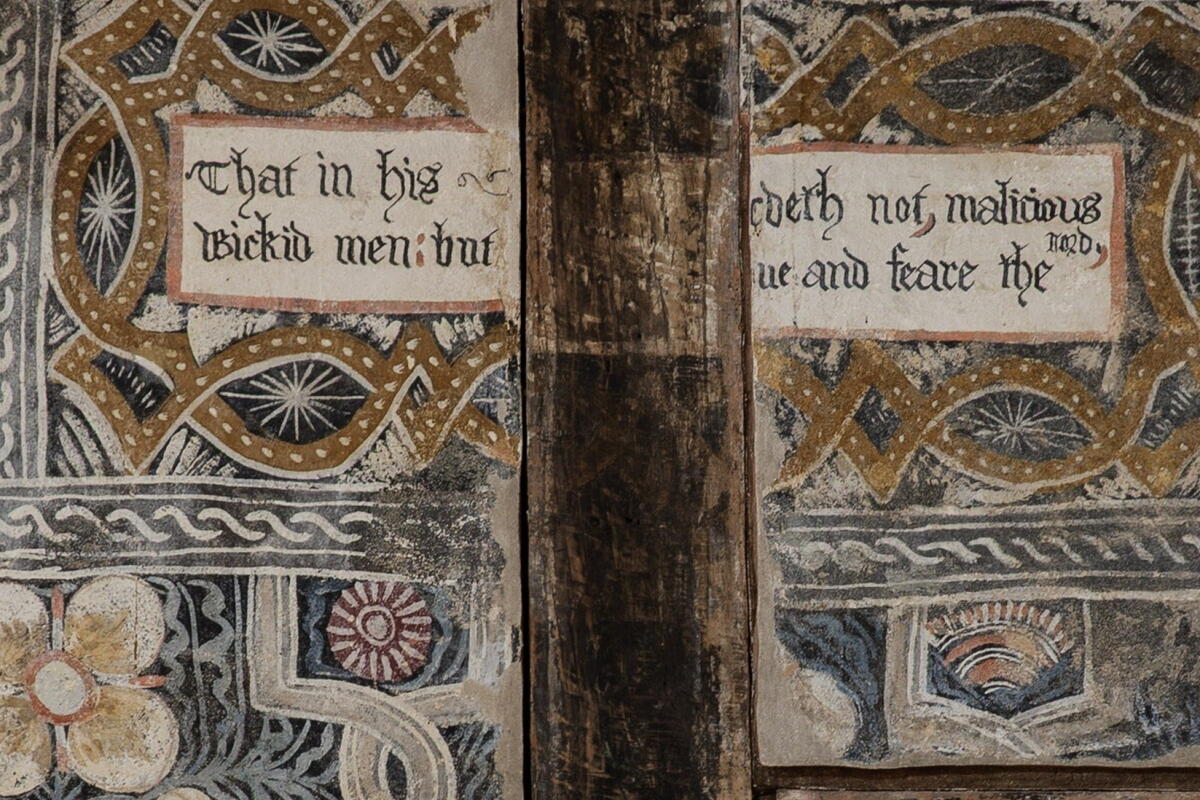 That in his
Wickid men: but
edeth not, malicious
ue and feare the Lord,